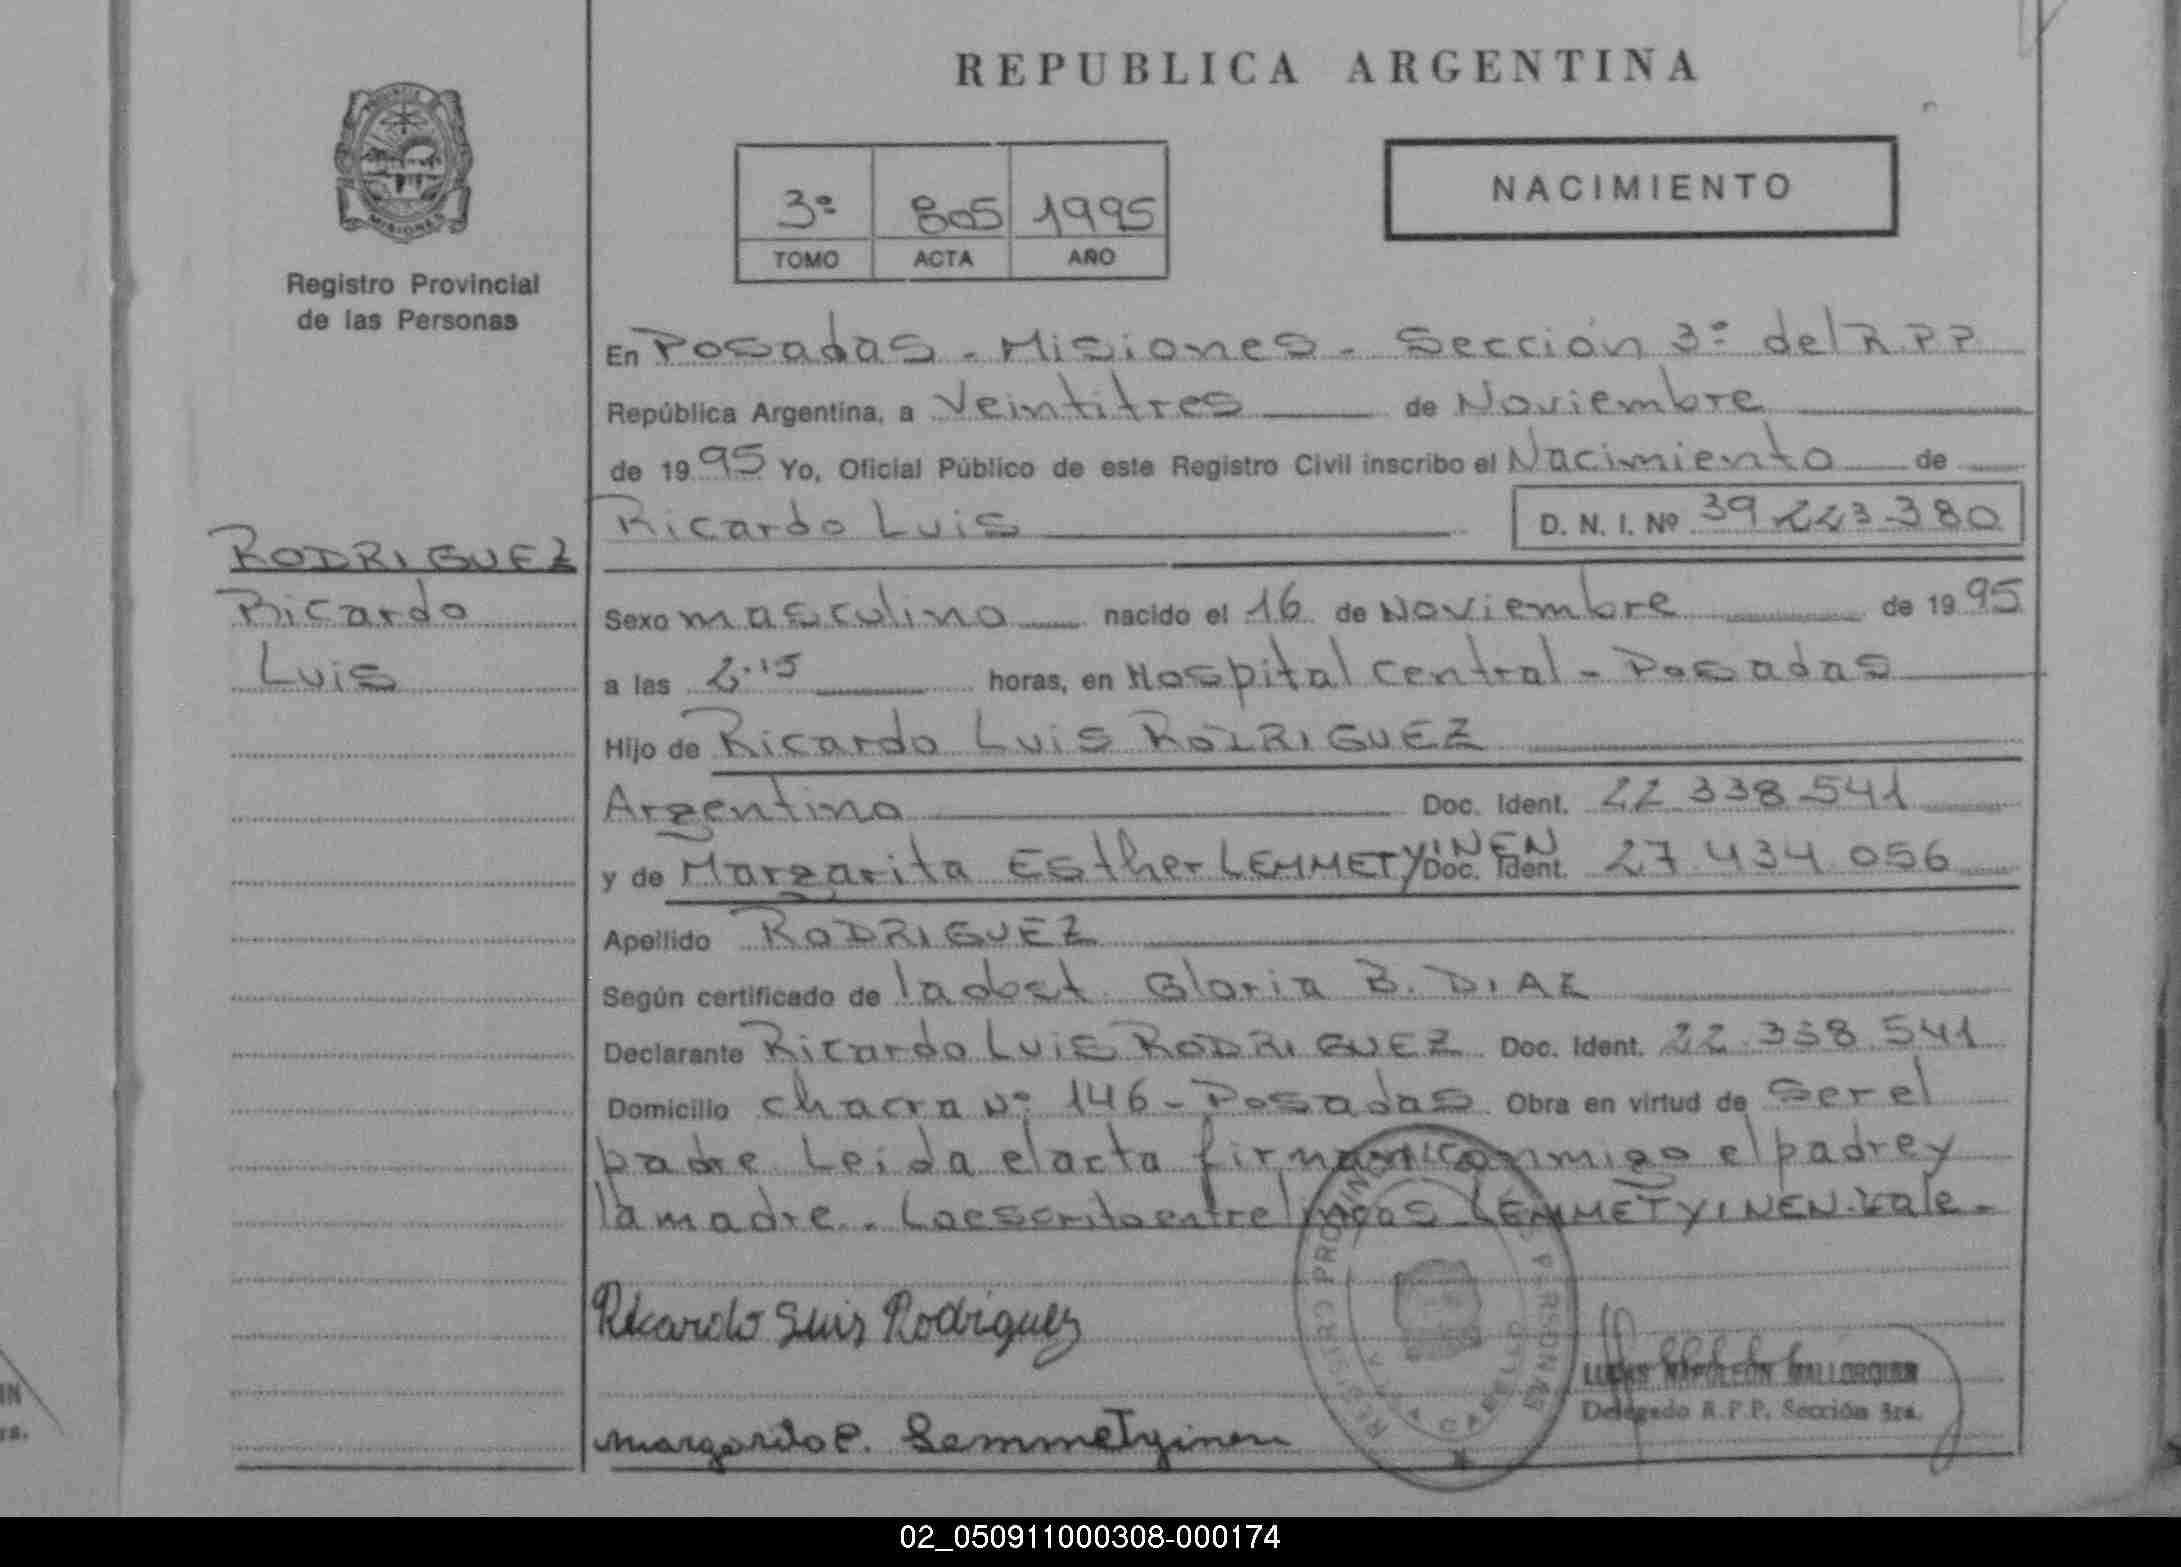 REPUBLICA ARGENTINA
PROVINCIA DE
MISIONES
Registro Provincial
de las Personas
3º 805 1995
TOMO ACTA AÑO
NACIMIENTO
En Posadas - Misiones - Sección 3º del R.P.P
República Argentina, a Veintitres de Noviembre
de 1995 Yo, Oficial Público de este Registro Civil inscribo el Nacimiento de
Ricardo Luis D. N. I. Nº 39.223.380
RODRIGUEZ
Ricardo
Luis
Sexo masculino nacido el 16 de Noviembre de 1995
a las 2.15 horas, en Hospital Central - Posadas
Hijo de Ricardo Luis RODRIGUEZ
Argentino Doc. Ident. 22.338.541
y de Margarita Esther LEMMETYINEN Doc. Ident. 27.434.056
Apellido RODRIGUEZ
Según certificado de la obst. Gloria B. DIAZ
Declarante Ricardo Luis RODRIGUEZ Doc. Ident. 22.338.541
Domicilio chacra Nº 146 - Posadas Obra en virtud de ser el
padre Leida el acta firman conmigo el padre y
la madre. Lo escrito entre lineas LEMMETYINEN. Vale.
Ricardo Luis Rodriguez
LUCAS NAPOLEON MALLORQUIN
Delegado R.P.P. Sección 3ra.
Margarita E. Lemmetyinen
REGISTRO PROVINCIAL DE LAS PERSONAS
IN
rs.
02_050911000308-000174